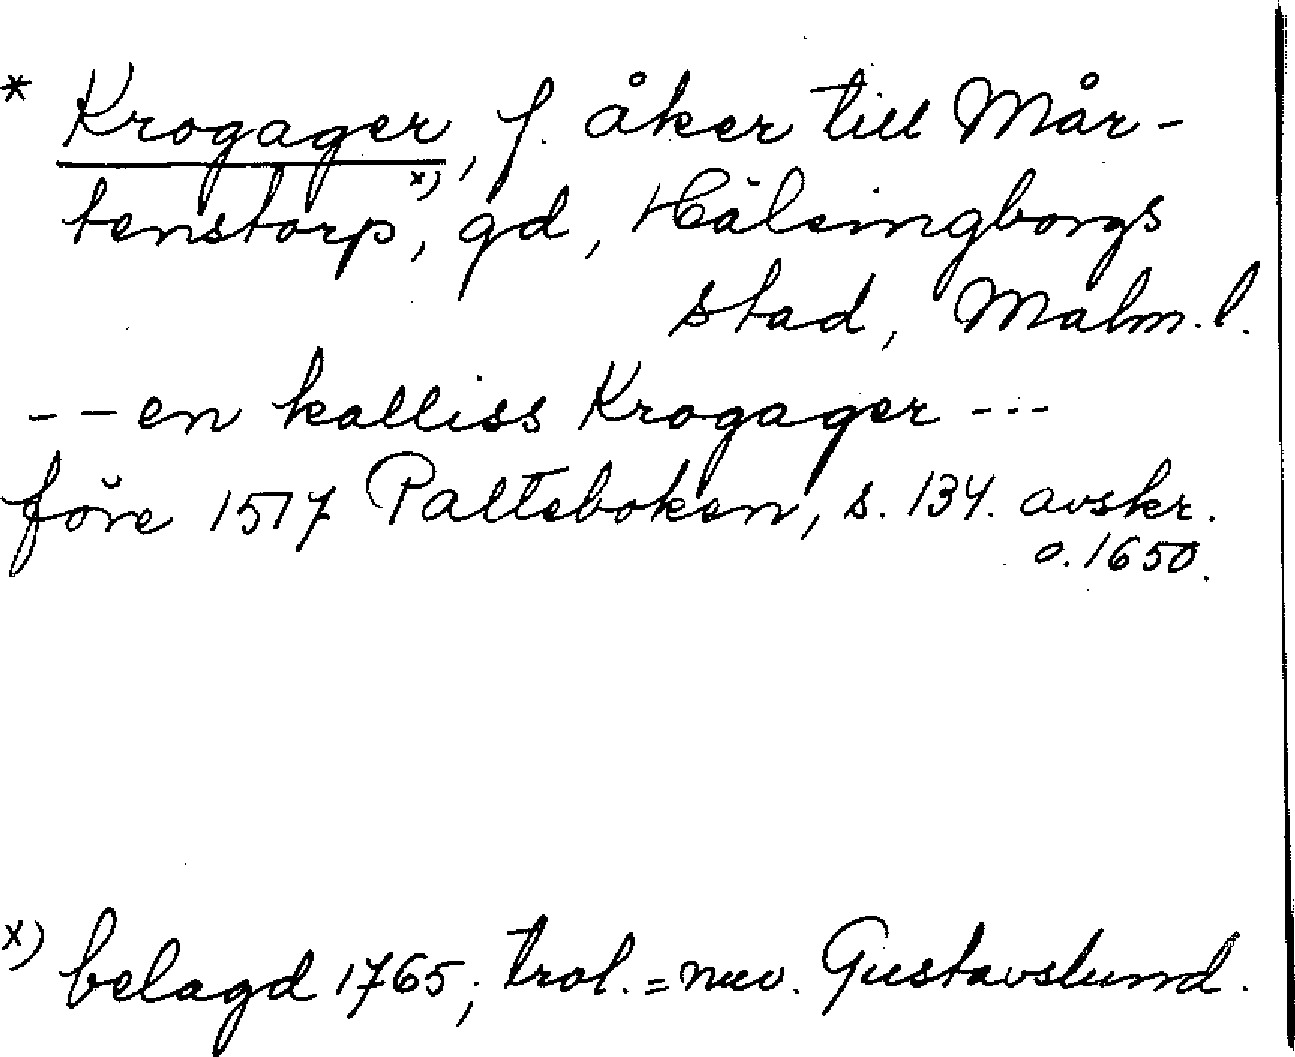 * Krogager, f. åker till Mår-
tenstorp x), gd, Hälsingborgs
stad, Malm. l.
-- en kalliss Krogager ---
före 1517 Palteboken, s. 134. avskr.
o. 1650.
x) belagd 1765; trol. = nuv. Gustavslund.